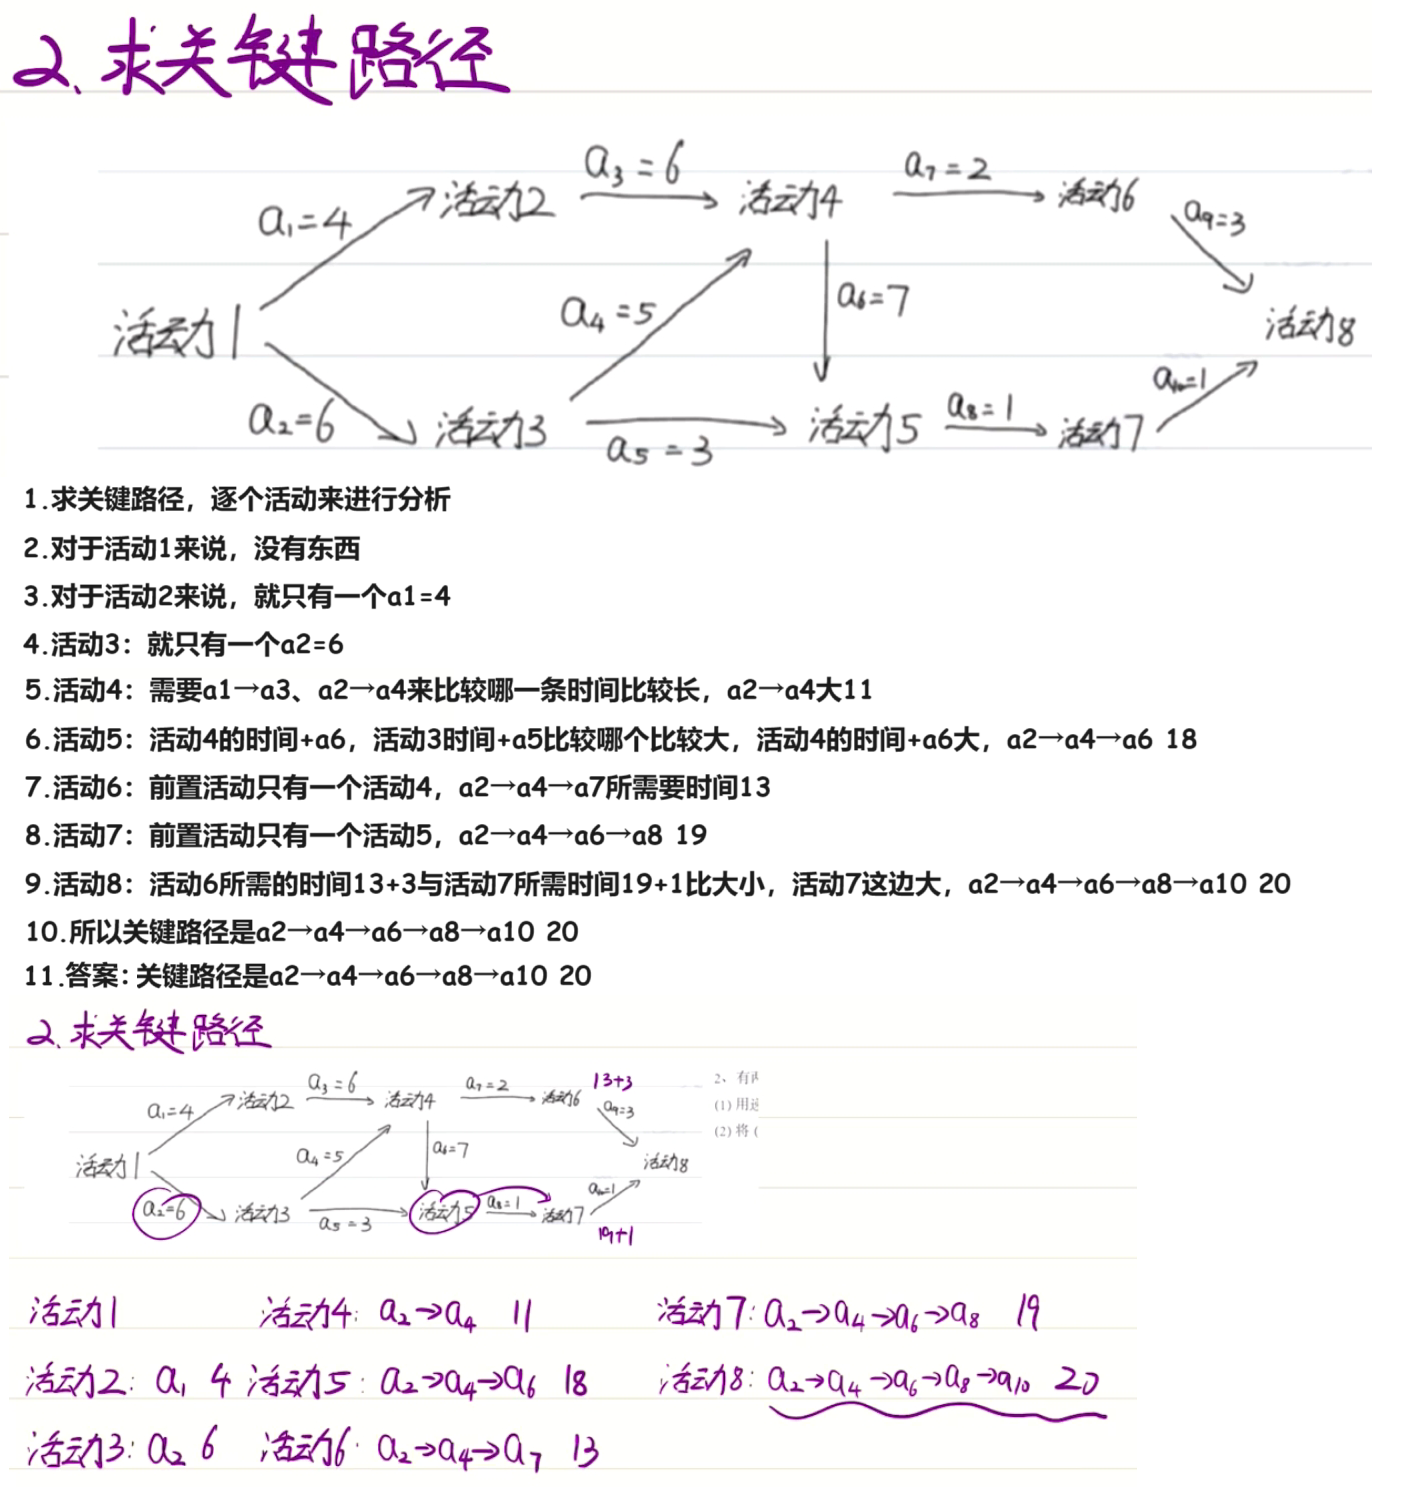 2. 求关键路径
活动2 a3=6 活动4 a7=2 活动6
a1=4 a9=3
活动1 a4=5 a6=7 活动8
a2=6 活动3 a5=3 活动5 a8=1 活动7 a10=1
1.求关键路径，逐个活动来进行分析
2.对于活动1来说，没有东西
3.对于活动2来说，就只有一个a1=4
4.活动3：就只有一个a2=6
5.活动4：需要a1→a3、a2→a4来比较哪一条时间比较长，a2→a4大11
6.活动5：活动4的时间+a6，活动3时间+a5比较哪个比较大，活动4的时间+a6大，a2→a4→a6 18
7.活动6：前置活动只有一个活动4，a2→a4→a7所需要时间13
8.活动7：前置活动只有一个活动5，a2→a4→a6→a8 19
9.活动8：活动6所需的时间13+3与活动7所需时间19+1比大小，活动7这边大，a2→a4→a6→a8→a10 20
10.所以关键路径是a2→a4→a6→a8→a10 20
11.答案：关键路径是a2→a4→a6→a8→a10 20
2. 求关键路径
活动2 a3=6 活动4 a7=2 活动6 13+3
a1=4 a9=3
活动1 a4=5 a6=7 活动8
a2=6 活动3 a5=3 活动5 a8=1 活动7 a10=1
19+1
2、有
(1) 用
(2) 将 (
活动1 活动4: a2→a4 11 活动7: a2→a4→a6→a8 19
活动2: a1 4 活动5: a2→a4→a6 18 活动8: a2→a4→a6→a8→a10 20
活动3: a2 6 活动6: a2→a4→a7 13